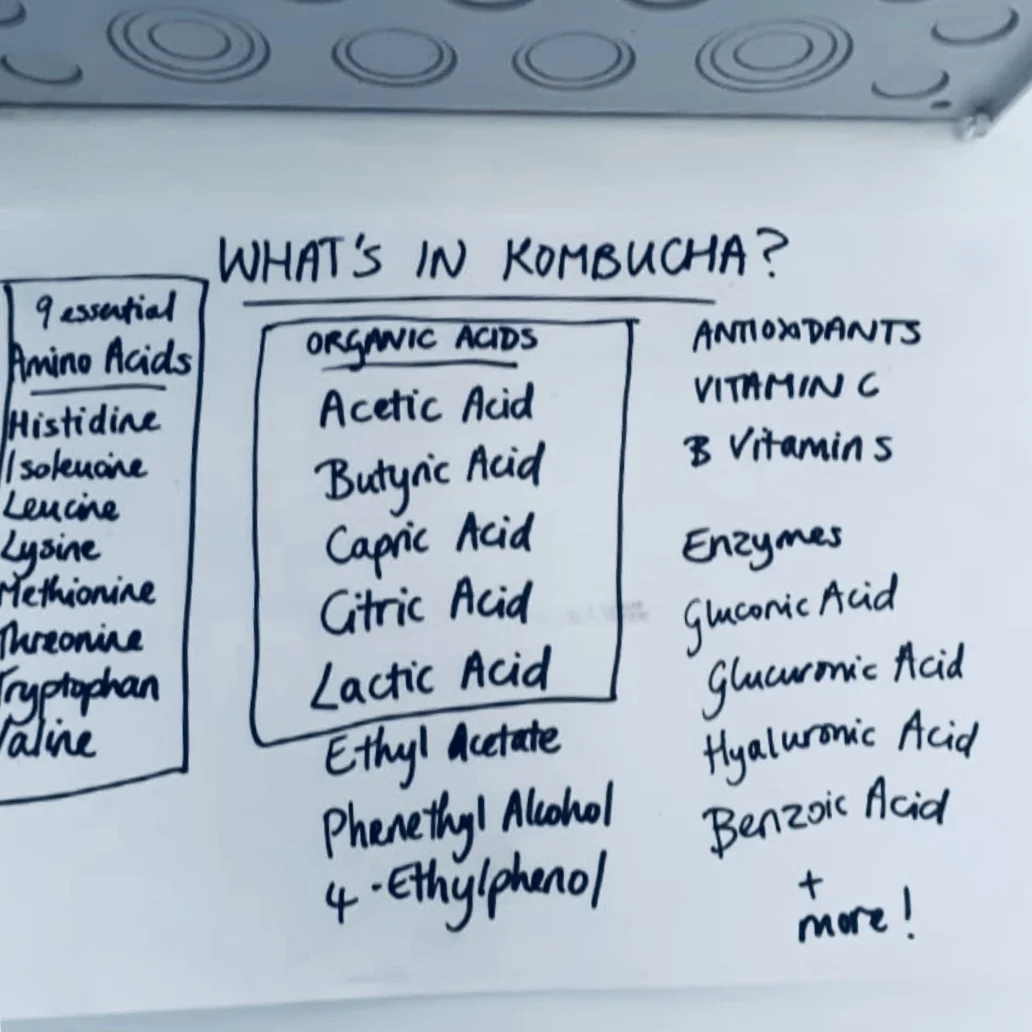 WHAT'S IN KOMBUCHA?
9 essential
Amino Acids
Histidine
Isoleucine
Leucine
Lysine
Methionine
Threonine
Tryptophan
Valine
ORGANIC ACIDS
Acetic Acid
Butyric Acid
Capric Acid
Citric Acid
Lactic Acid
Ethyl Acetate
Phenethyl Alcohol
4-Ethylphenol
ANTIOXIDANTS
VITAMIN C
B Vitamins
Enzymes
Gluconic Acid
Glucuronic Acid
Hyaluronic Acid
Benzoic Acid
+
more!